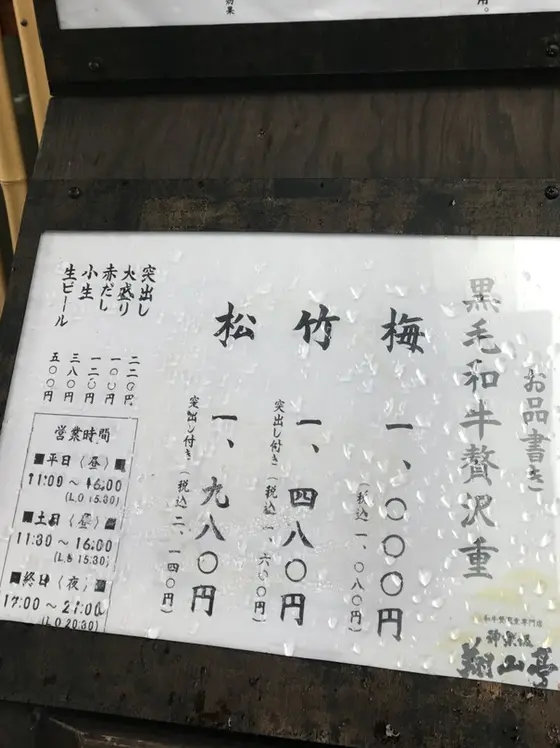 効果
用。
お品書き
黒毛和牛贅沢重
梅
一、〇〇〇円
(税込 一、〇八〇円)
竹
一、四八〇円
突出し付き(税込 一、六〇〇円)
松
一、九八〇円
突出し付き(税込 二、一四〇円)
突出し 二二〇円
大盛り 一〇〇円
赤だし 一二〇円
小生 三八〇円
生ビール 五〇〇円
営業時間
■平日〈昼〉■
11:00～16:00
(L.O 15:30)
■土日〈昼〉■
11:30～16:00
(L.O 15:30)
■終日〈夜〉■
17:00～21:00
(L.O 20:30)
和牛贅沢重専門店
神楽坂
翔山亭